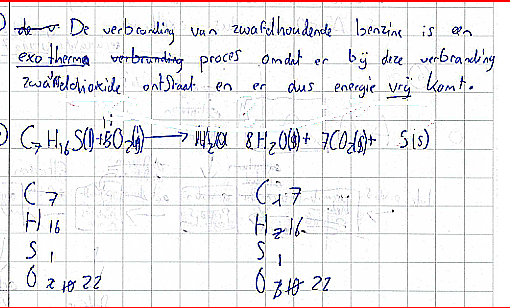 De verbranding van zwafelhoudende benzine is een
exotherm verbranding proces omdat er bij deze verbranding
zwafeldioxide ontstaat en er dus energie vrij komt.
C7 H16 S(l) + O2(g) → 8H2O(g) + 7CO2(g) + S(s)
C 7 C 7
H 16 H 16
S 1 S 1
O 22 O 22